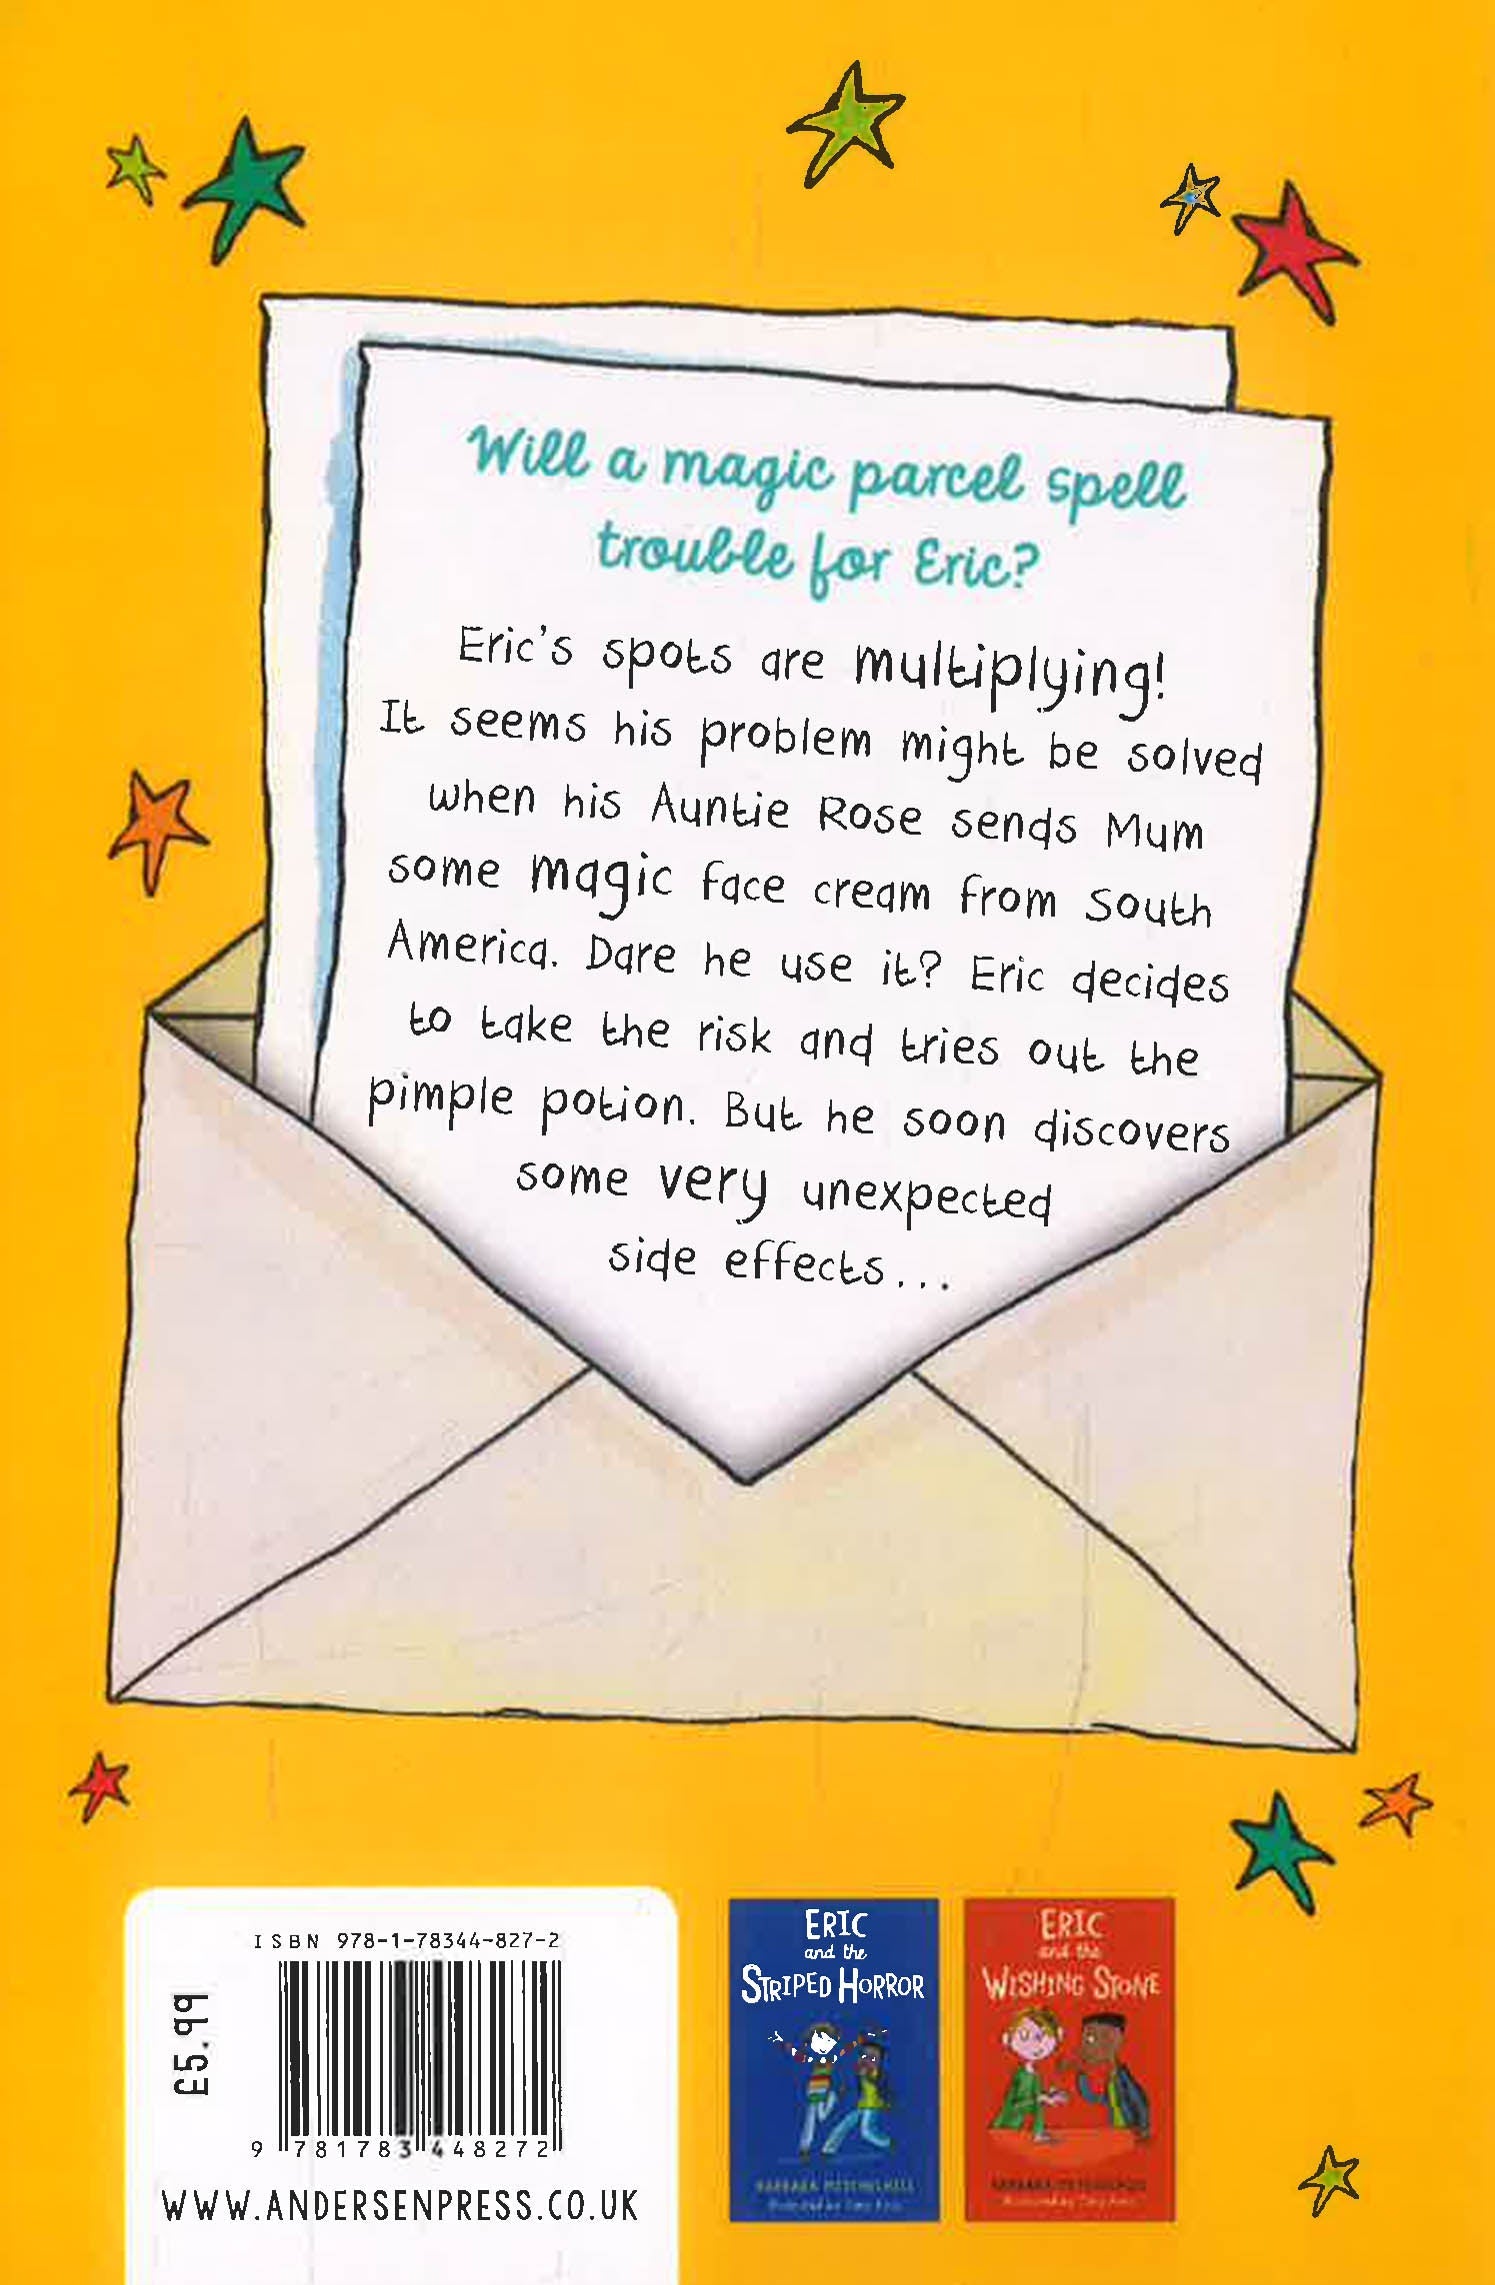 Will a magic parcel spell
trouble for Eric?
Eric's spots are multiplying!
It seems his problem might be solved
when his Auntie Rose sends Mum
some magic face cream from South
America. Dare he use it? Eric decides
to take the risk and tries out the
pimple potion. But he soon discovers
some very unexpected
side effects...
ISBN 978-1-78344-827-2
£5.99
9 781783 448272
WWW.ANDERSENPRESS.CO.UK
ERIC
and the
STRIPED HORROR
BARBARA MITCHELHILL
ERIC
and the
WISHING STONE
BARBARA MITCHELHILL